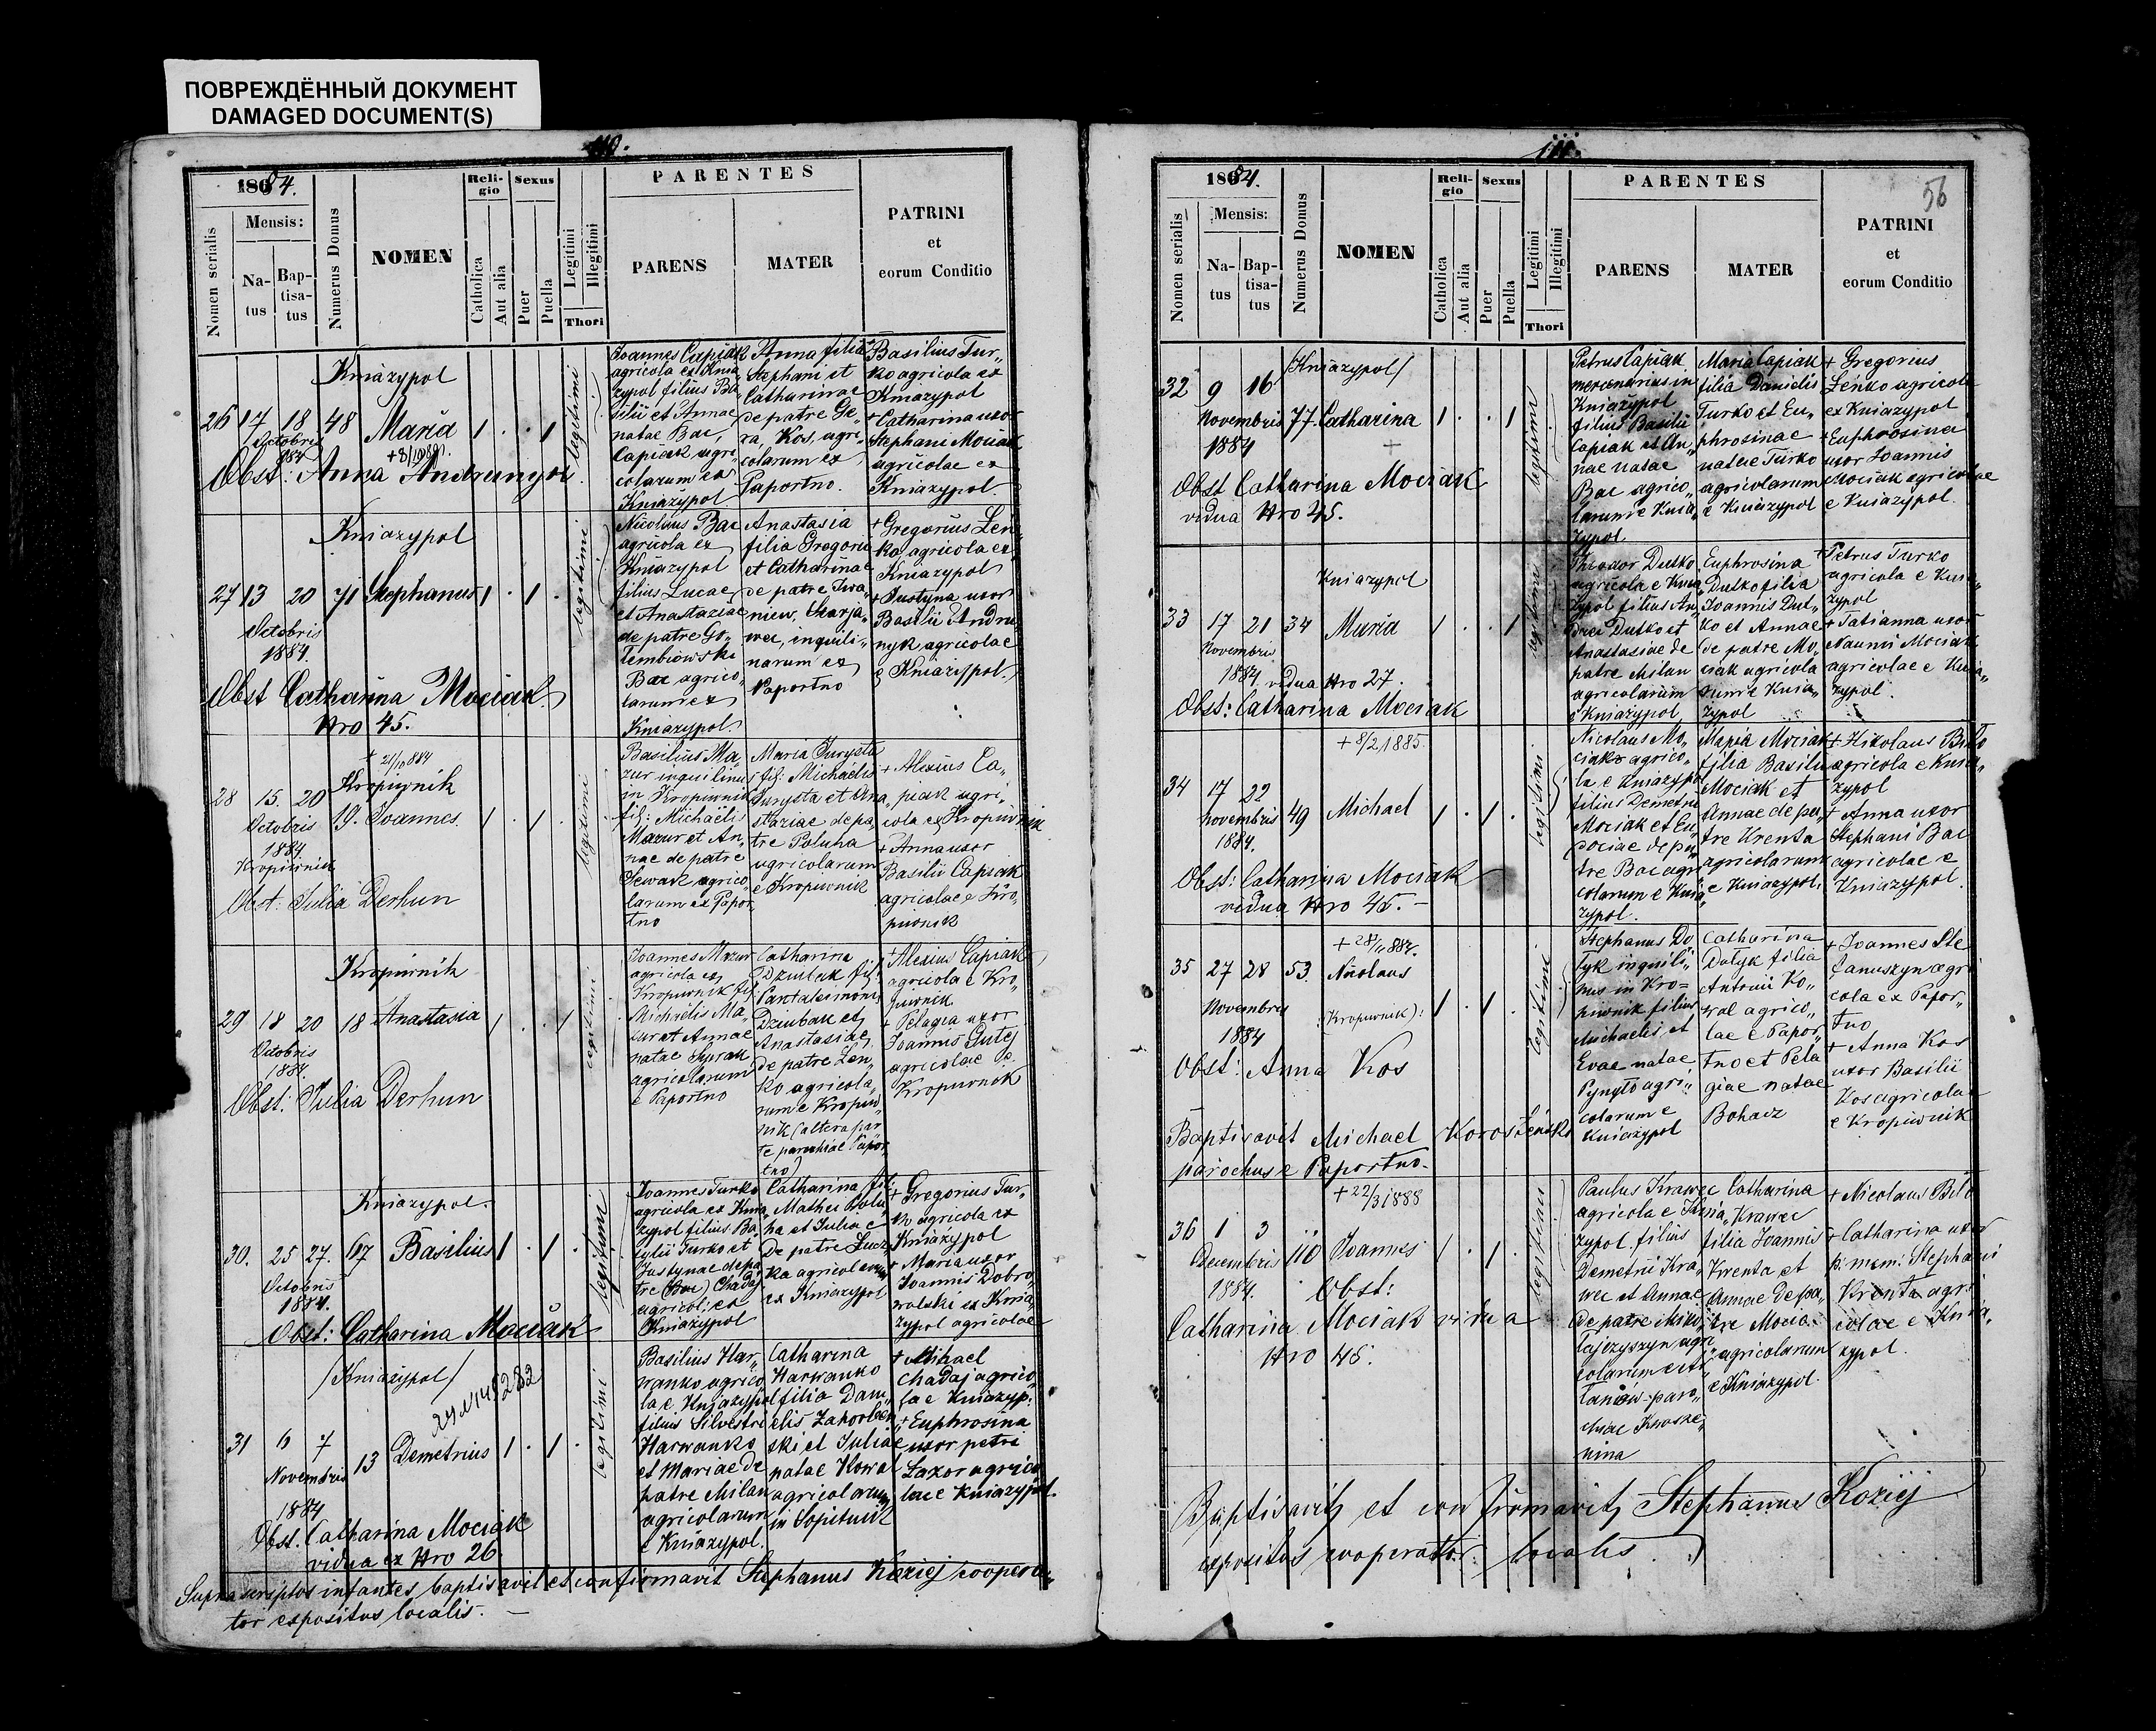 ПОВРЕЖДЁННЫЙ ДОКУМЕНТ
DAMAGED DOCUMENT(S)
110.
1884.
Nomen serialis
Mensis:
Natus
Baptisatus
Numerus Domus
NOMEN
Religio
Catholica
Aut alia
Sexus
Puer
Puella
Legitimi
Illegitimi
Thori
PARENTES
PARENS
MATER
PATRINI
et
eorum Conditio
Kniazypol
26 17 18 48 Maria 1 . . 1 legitimi
Octobris
884
Obst: Anna Andrunyk
Joannes Capiak
agricola ex Knia
zypol filius Ba
silii et Annae
natae Bac,
Capiak agri
colarum ex
Kniazypol
Anna filia
Stephani et
Catharinae
de patre Ge
ra, Kos, agri
colarum ex
Paportno.
Basilius Tur„
ko agricola ex
Kniazypol
+ Catharina uxor
Stephani Mociak
agricolae ex
Kniazypol.
Kniazypol
27 13 20 71 Stephanus 1 . 1 . legitimi
Octobris
1884.
Obst Catharina Mociak
Nro 45.
Nicolaus Bac
agricola ex
Kniazypol
filius Lucae
et Anastaziae
de patre Go„
lembiowski
Bac agrico„
larum ex
Kniazypol.
Anastasia
filia Gregorii
et Catharinae
de patre Iwa„
niew, Skarja„
wec, inquili„
narum ex
Paportno
+ Gregorius Len„
ko agricola ex
Kniazypol
+ Justyna uxor
Basilii Andru
nyk agricolae
e Kniazypol.
+ 21/10 884
Kropiwnik
28 15. 20 19. Joannes. 1 . 1 . legitimi
Octobris
1884.
Kropiwnik
Obst: Julia Derhun
Basilius Ma„
zur inquilinus
in Kropiwnik
fil: Michaelis
Mazur et An„
nae de patre
Sewark agrico
larum ex Papor
tno
Maria Jurysta
fil: Michaelis
Jurysta et Ana„
staziae de pa„
tre Poluha
agricolarum
e Kropiwnik
+ Alexius Ca„
piak agri„
cola ex Kropiwnik
+ Anna uxor
Basilii Capiak
agricolae e Kro„
piwnik
Kropiwnik
29 18 20 18 Anastasia 1 . . 1 legitimi
Octobris
1884.
Obst: Julia Derhun
Joannes Mazur
agricola ex
Kropiwnik fil:
Michaelis Ma„
zur et Annae
natae Syrak
agricolarum
e Paportno
Catharina
Dziubak fil:
Pantaleimonis
Dziubak et
Anastasiae
de patre Len„
ko agricola„
rum e Kropiw„
nik (altera par
te parochiae Papor
tno)
+ Alexius Capiak
agricola e Kro„
piwnik
+ Pelagia uxor
Joannis Gutej
agricolae e
Kropiwnik
Kniazypol.
30. 25 27. 67 Basilius 1 . 1 . legitimi
Octobris
1884.
Obst: Catharina Mociak
Joannes Turko
agricola ex Knia„
zypol filius Ba
sylii Turko et
Justynae de pa
tre (Bac) Chadaj
agricol: ex
Kniazypol
Catharina fil:
Mathei Polu„
ha et Julia e
de patre Lucz
ka agricolarum
ex Kniazypol
+ Gregorius Tur„
ko agricola ex
Kniazypol
+ Maria uxor
Joannis Dobro„
wolski ex Knia
zypol agricolae
/Kniazypol/
31 6 7 13 Demetrius 1 . 1 . legitimi
Novembris
1884
Obst. Catharina Mociak
vidua ex Nro 26.
Basilius Har„
wanko agrico
la e Kniazypol
filius Silvestri
Harwanko
et Mariae de
patre Milan
agricolarum
e Kniazypol.
Catharina
Harwanko
filia Dani„
elis
ski et Juliae
natae Kowa
agricolarum
in Sopitnik
+ Mihael
Chadaj agrico„
la e Kniazyp:
+ Euphrosina
uxor petri
Lazor agrico
lae e Kniazypol.
Supra scriptos infantes baptisavit et confirmavit Stephanus Koziej coopera„
tor expositus localis. —
111.
56
1884.
Nomen serialis
Mensis:
Natus
Baptisatus
Numerus Domus
NOMEN
Religio
Catholica
Aut alia
Sexus
Puer
Puella
Legitimi
Illegitimi
Thori
PARENTES
PARENS
MATER
PATRINI
et
eorum Conditio
/Kniazypol/
32 9 16 77. Catharina 1 . . 1 legitimi
Novembris
1884
Obst Catharina Mociak
vidua Nro 45.
Petrus Capiak
mercenarius in
Kniazypol
filius Basilii
Capiak et An„
nae natae
Bac agrico„
larum e Knia„
zypol
Maria Capiak
filia Danielis
Turko et Eu„
phrosinae
natae Turko
agricolarum
e Kniazypol
+ Gregorius
Lenko agricola
ex Kniazypol
+ Euphrosina
uxor Joannis
Mociak agricolae
e Kniazypol.
Kniazypol
33 17 21 34 Maria 1 . . 1 legitimi
Novembris
1884 vidua Nro 27.
Obst: Catharina Mociak
Theodor Dutko
agricola e Knia„
zypol filius An„
drei Dutko et
Anastasiae de
patre Milan
agricolarum
e Kniazypol
Euphrosina
Dutko filia
Joannis Dut„
ko et Annae
de patre Mo„
ciak agricola
rum e Knia„
zypol
+ Petrus Turko
agricola e Knia„
zypol
+ Tatianna uxor
Naumi Mociak
agricolae e Knia„
zypol.
+ 8/2 1885.
34 17 22 49 Michael 1 . 1 . legitimi
Novembris
1884.
Obst: Catharina Mociak
vidua Nro 45. —
Nicolaus Mo„
ciak agrico„
la e Kniazypol
filius Demetrii
Mociak et Eu„
dociae de pa„
tre Bac agri
colarum e Knia„
zypol.
Maria Mociak
filia Basilii
Mociak et
Annae de pa„
tre Krenta
agricolarum
e Kniazypol.
+ Nikolaus Bilo
agricola e Knia„
zypol
+ Anna uxor
Stephani Bac
agricolae e
Kniazypol.
+ 28/11 884.
35 27 28 53. Nicolaus 1 . 1 . legitimi
Novembris
1884
:Kropiwnik):
Obst: Anna Kos
Stephanus Do
tyk inquili„
nus in Kro=
piwnik filius
Michaelis et
Evae natae
Pynylo agri„
colarum e
Kniazypol
Catharina
Dotyk filia
Antonii Ko„
wal agrico„
lae e Papor„
tno et Pela
giae natae
Bohacz
+ Joannes Ste
fanuszyn agri
cola ex Papor„
tno
+ Anna Kos
uxor Basilii
Kos agricolae
e Kropiwnik
Baptisavit Michael
parochus e Paportno.
+ 22/3 1888
36 1 3 110 Joannes 1 . 1 . legitimi
Decembris
1884. Obst:
Catharina Mociak vidua
Nro 45.
Paulus Krawec
agricola e Knia„
zypol filius
Demetrii Kra„
wec et Annae
de patre Miko„
łajczyszyn agri„
colarum
paro„
chiae
Catharina
Krawec
filia Joannis
Krenta et
Annae de pa„
tre Mocia„
agricolarum
e Kniazypol.
+ Nicolaus Bilo
+ Catharina uxor
Stephani
Krenta agri
colae e Knia„
zypol.
Baptisavit et confirmavit Stephanus Koziej
expositus cooperator localis.